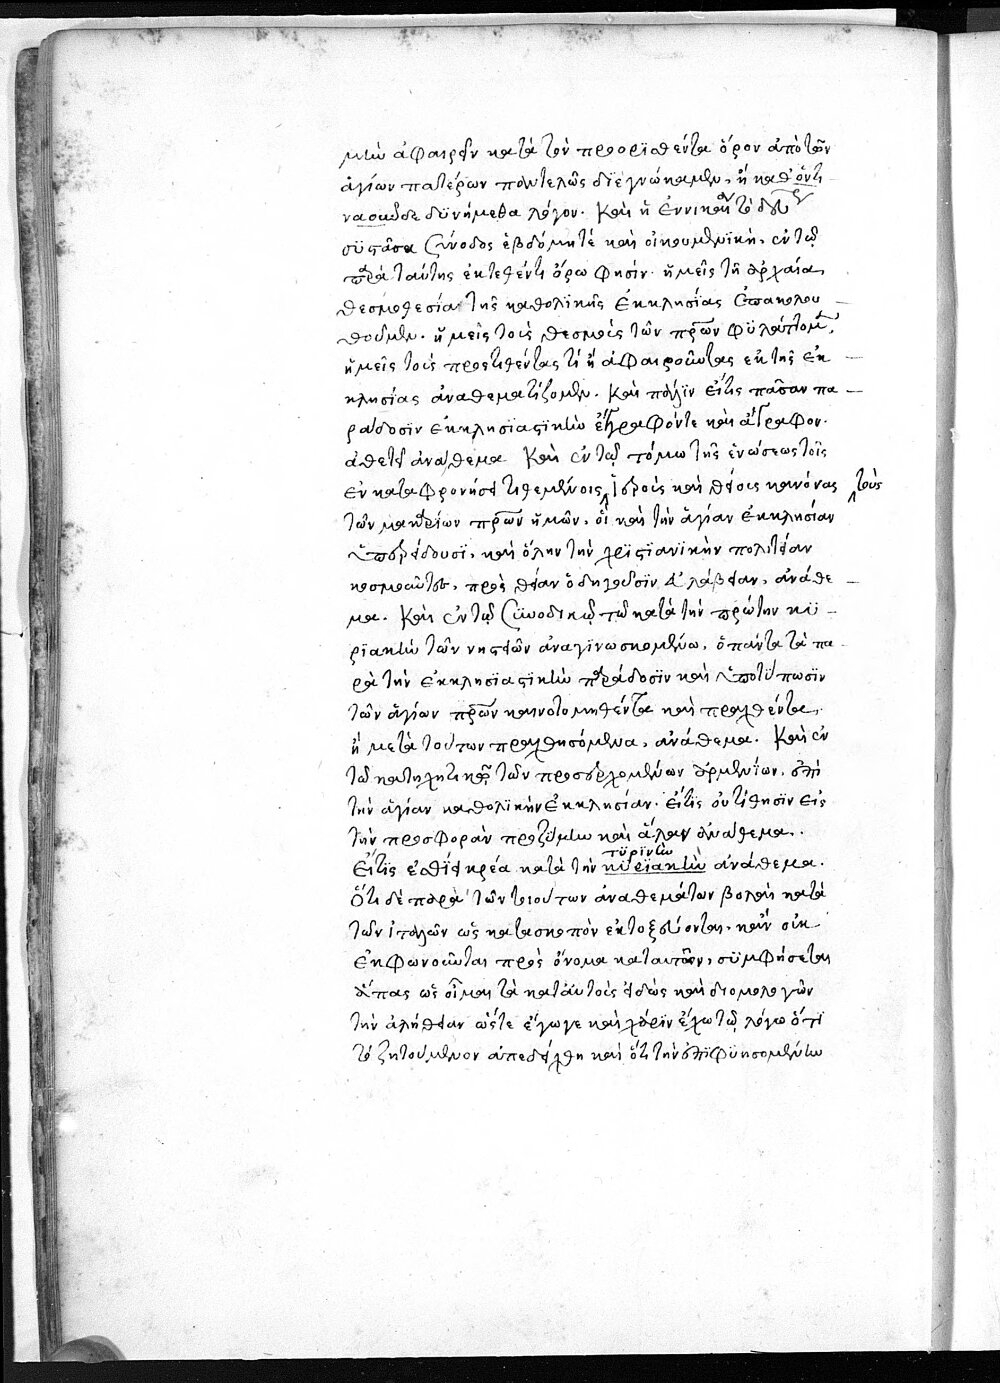 μὴν ἀφαιρεῖν κατὰ τὸν προορισθέντα ὅρον ἀπὸ τῶν
ἁγίων πατέρων παντελῶς διεγνώκαμεν, ἢ καθ' ὅντι
ναοῦν δὲ δϋνήμεθα λόγον. Καὶ ἡ ἐν νικαίᾳ τὸ
σϋστᾶσα σύνοδος ἑβδόμη τὲ καὶ οἰκουμενϊκὴ, ἐν τῷ
παρὰ ταύτης ἐκτεθέντι ὅρω φησίν· ἡμεῖς τῆ ἀρχαία
θεσμοθεσία τῆς καθολϊκῆς ἐκκλησίας ἐπακολου
θοῦμεν. ἡμεῖς τοὺς θεσμοὺς τῶν πρῶν φϋλάττομεν,
ἡμεῖς τοὺς προστιθέντας τὶ ἢ ἀφαιροῦντας ἐκ τῆς ἐκ
κλησίας ἀναθεματίζομεν. Καὶ πάλϊν εἴτις πᾶσαν πα
ράδοσϊν ἐκκλησϊαστικὴν ἔγγραφόν τε καὶ ἄγραφον
ἀθετεῖ ἀνάθεμα Καὶ ἐν τῷ τόμω τῆς ἑνώσεως τοῖς
ἐν καταφρονήσει τιθεμένοις τοὺς ἱεροὺς καὶ θείους κανόνας
τῶν μακαρίων πρῶν ἡμῶν, οἳ καὶ τὴν ἁγίαν ἐκκλησίαν
ὑπερείδουσϊ, καὶ ὅλην τὴν χρϊστϊανϊκὴν πολιτείαν
κοσμοῦντες, πρὸς θείαν ὁδηγοῦσϊν εὐλάβειαν, ἀνάθε
μα. Καὶ ἐν τῷ σϋνοδικῷ τῶ κατὰ τὴν πρώτην κϋ
ρϊακὴν τῶν νηστειῶν ἀναγϊνωσκομένω, ἅπαντα τὰ πα
ρὰ τὴν ἐκκλησϊαστϊκὴν παράδοσϊν καὶ ὑποτύπωσϊν
τῶν ἁγίων πρῶν καινοτομηθέντα καὶ πραχθέντα,
ἢ μετὰ τούτων πραχθησόμενα, ἀνάθεμα. Καὶ ἐν
τῶ κατηχητικῷ τῶν προσερχομένων ἀρμενΐων, ἐπὶ
τὴν ἁγίαν καθολϊκὴν ἐκκλησίαν. εἴτϊς οὐ τίθησϊν εἰς
τὴν προσφορὰν προζύμην καὶ ἅλας ἀνάθεμα.
Εἴτϊς ἐσθίει κρέα κατὰ τὴν κϋρϊακὴν ἀνάθεμα.
τϋρϊνὴν
Ὅτι δὲ παρὰ τῶν τοιούτων ἀναθεμάτων βολαὶ κατὰ
τῶν ἰταλῶν ὡς κατασκοπὸν ἐκτοξεύονται, κἂν οὐκ
ἐκφωνοῦνται πρὸς ὄνομα κατ' αυτῶν, σϋμφήσεται
ἅπας ὡς οἶμαι τὰ κατ' αὐτοὺς εἰδὼς καὶ διομολογῶν
τὴν ἀλήθειαν ὥστε ἔγωγε καὶ χάρϊν ἔχω τῷ λόγω ὅτϊ
τὸ ζητούμενον ἀπεδείχθη καὶ ὅτι τὴν ἐπϊφϋησομένην